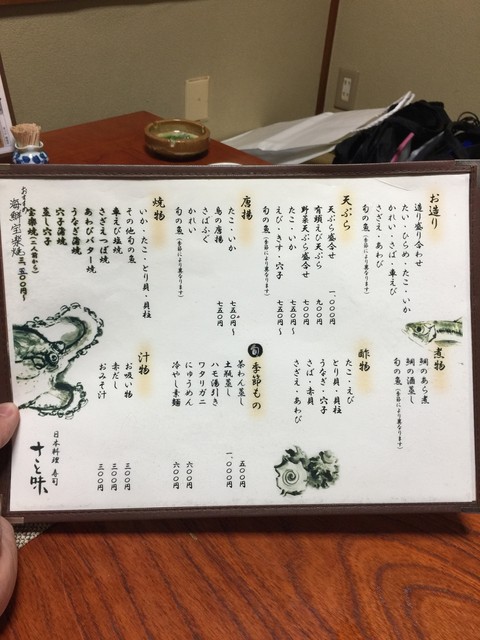 お造り
造り盛り合わせ
たい・ひらめ・たこ・いか
かれい・さば・車えび
さざえ・あわび
旬の魚(季節により異なります)
天ぷら
天ぷら盛合せ 一、〇〇〇円
有頭えび天ぷら 九〇〇円
野菜天ぷら盛合せ 七〇〇円
えび・たこ・いか 七五〇円
えび・きす・穴子 七五〇円~
旬の魚(季節により異なります)
唐揚
たこ・いか 七五〇円~
鳥の唐揚 七五〇円
さばふぐ
かれい
旬の魚(季節により異なります)
焼物
いか・たこ・とり貝・貝柱
その他旬の魚
車えび塩焼
さざえつぼ焼
あわびバター焼
うなぎ蒲焼
穴子蒲焼
蒸し穴子
宝楽焼(二人前から)
おすすめ
海鮮宝楽焼 三、五〇〇円~
煮物
鯛のあら煮
鯛の酒蒸し
旬の魚(季節により異なります)
酢物
たこ・えび
とり貝・貝柱
うなぎ・穴子
さば・赤貝
さざえ・あわび
旬 季節もの
茶わん蒸し 五〇〇円
土瓶蒸し 一、〇〇〇円
ハモ湯引き
ワタリガニ
にゅうめん 六〇〇円
冷やし素麺 六〇〇円
汁物
お吸い物 三〇〇円
赤だし 三〇〇円
おみそ汁 三〇〇円
日本料理 寿司
さと味